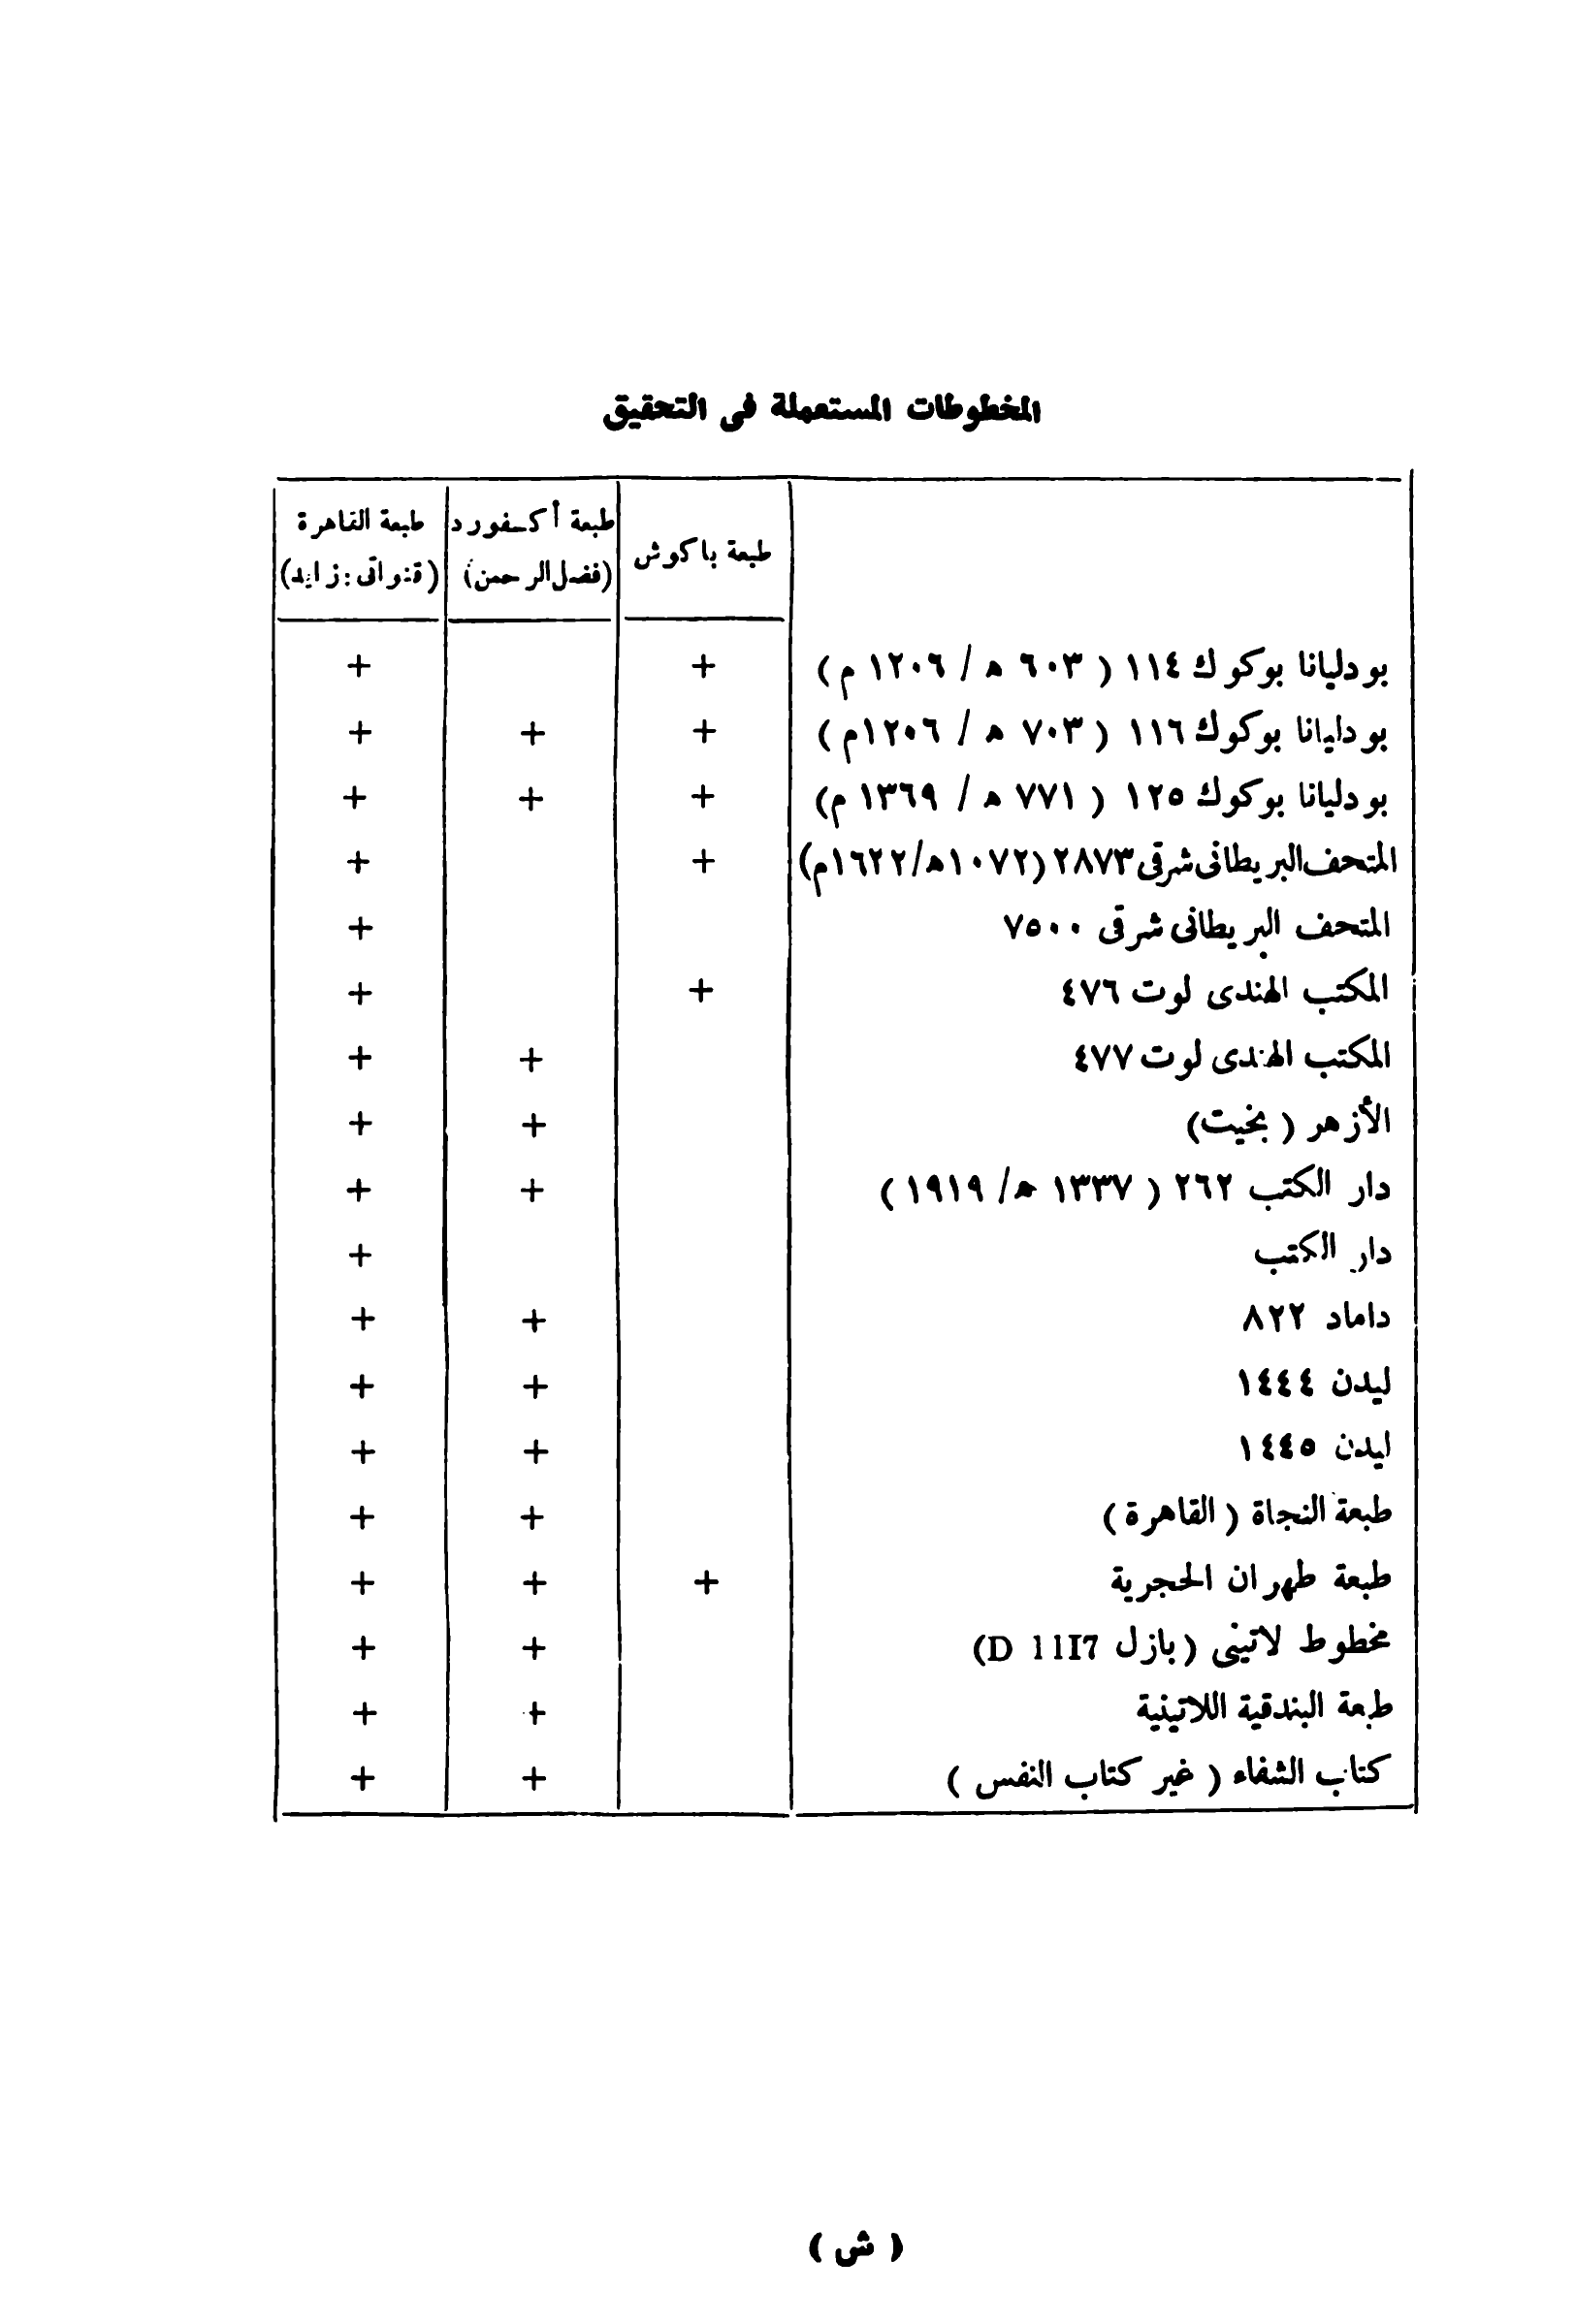 المخطوطات المستعملة فى التحقيق
طبعة باكوش
طبعة أكسفورد
(فضل الرحمن)
طبعة القاهرة
(قنواتى : زايد)
بودليانا بوكوك ١١٤ ( ٦٠٣ ه / ١٢٠٦ م ) + +
بودليانا بوكوك ١١٦ ( ٧٠٣ ه / ١٢٠٦م ) + + +
بودليانا بوكوك ١٢٥ ( ٧٧١ ه / ١٣٦٩ م) + + +
المتحف البريطانى شرقى ٢٨٧٣ (١٠٧٢ه/١٦٢٢م) + +
المتحف البريطانى شرقى ٧٥٠٠ +
المكتب الهندى لوت ٤٧٦ + +
المكتب الهندى لوت ٤٧٧ + +
الأزهر ( بخيت) + +
دار الكتب ٢٦٢ ( ١٣٣٧ ه/ ١٩١٩ ) + +
دار الكتب +
داماد ٨٢٢ + +
ليدن ١٤٤٤ + +
ليدن ١٤٤٥ + +
طبعة النجاة ( القاهرة ) + +
طبعة طهران الحجرية + + +
مخطوط لاتينى ( بازل D 11I7) + +
طبعة البندقية اللاتينية + +
كتاب الشفاء ( غير كتاب النفس ) + +
( ش )